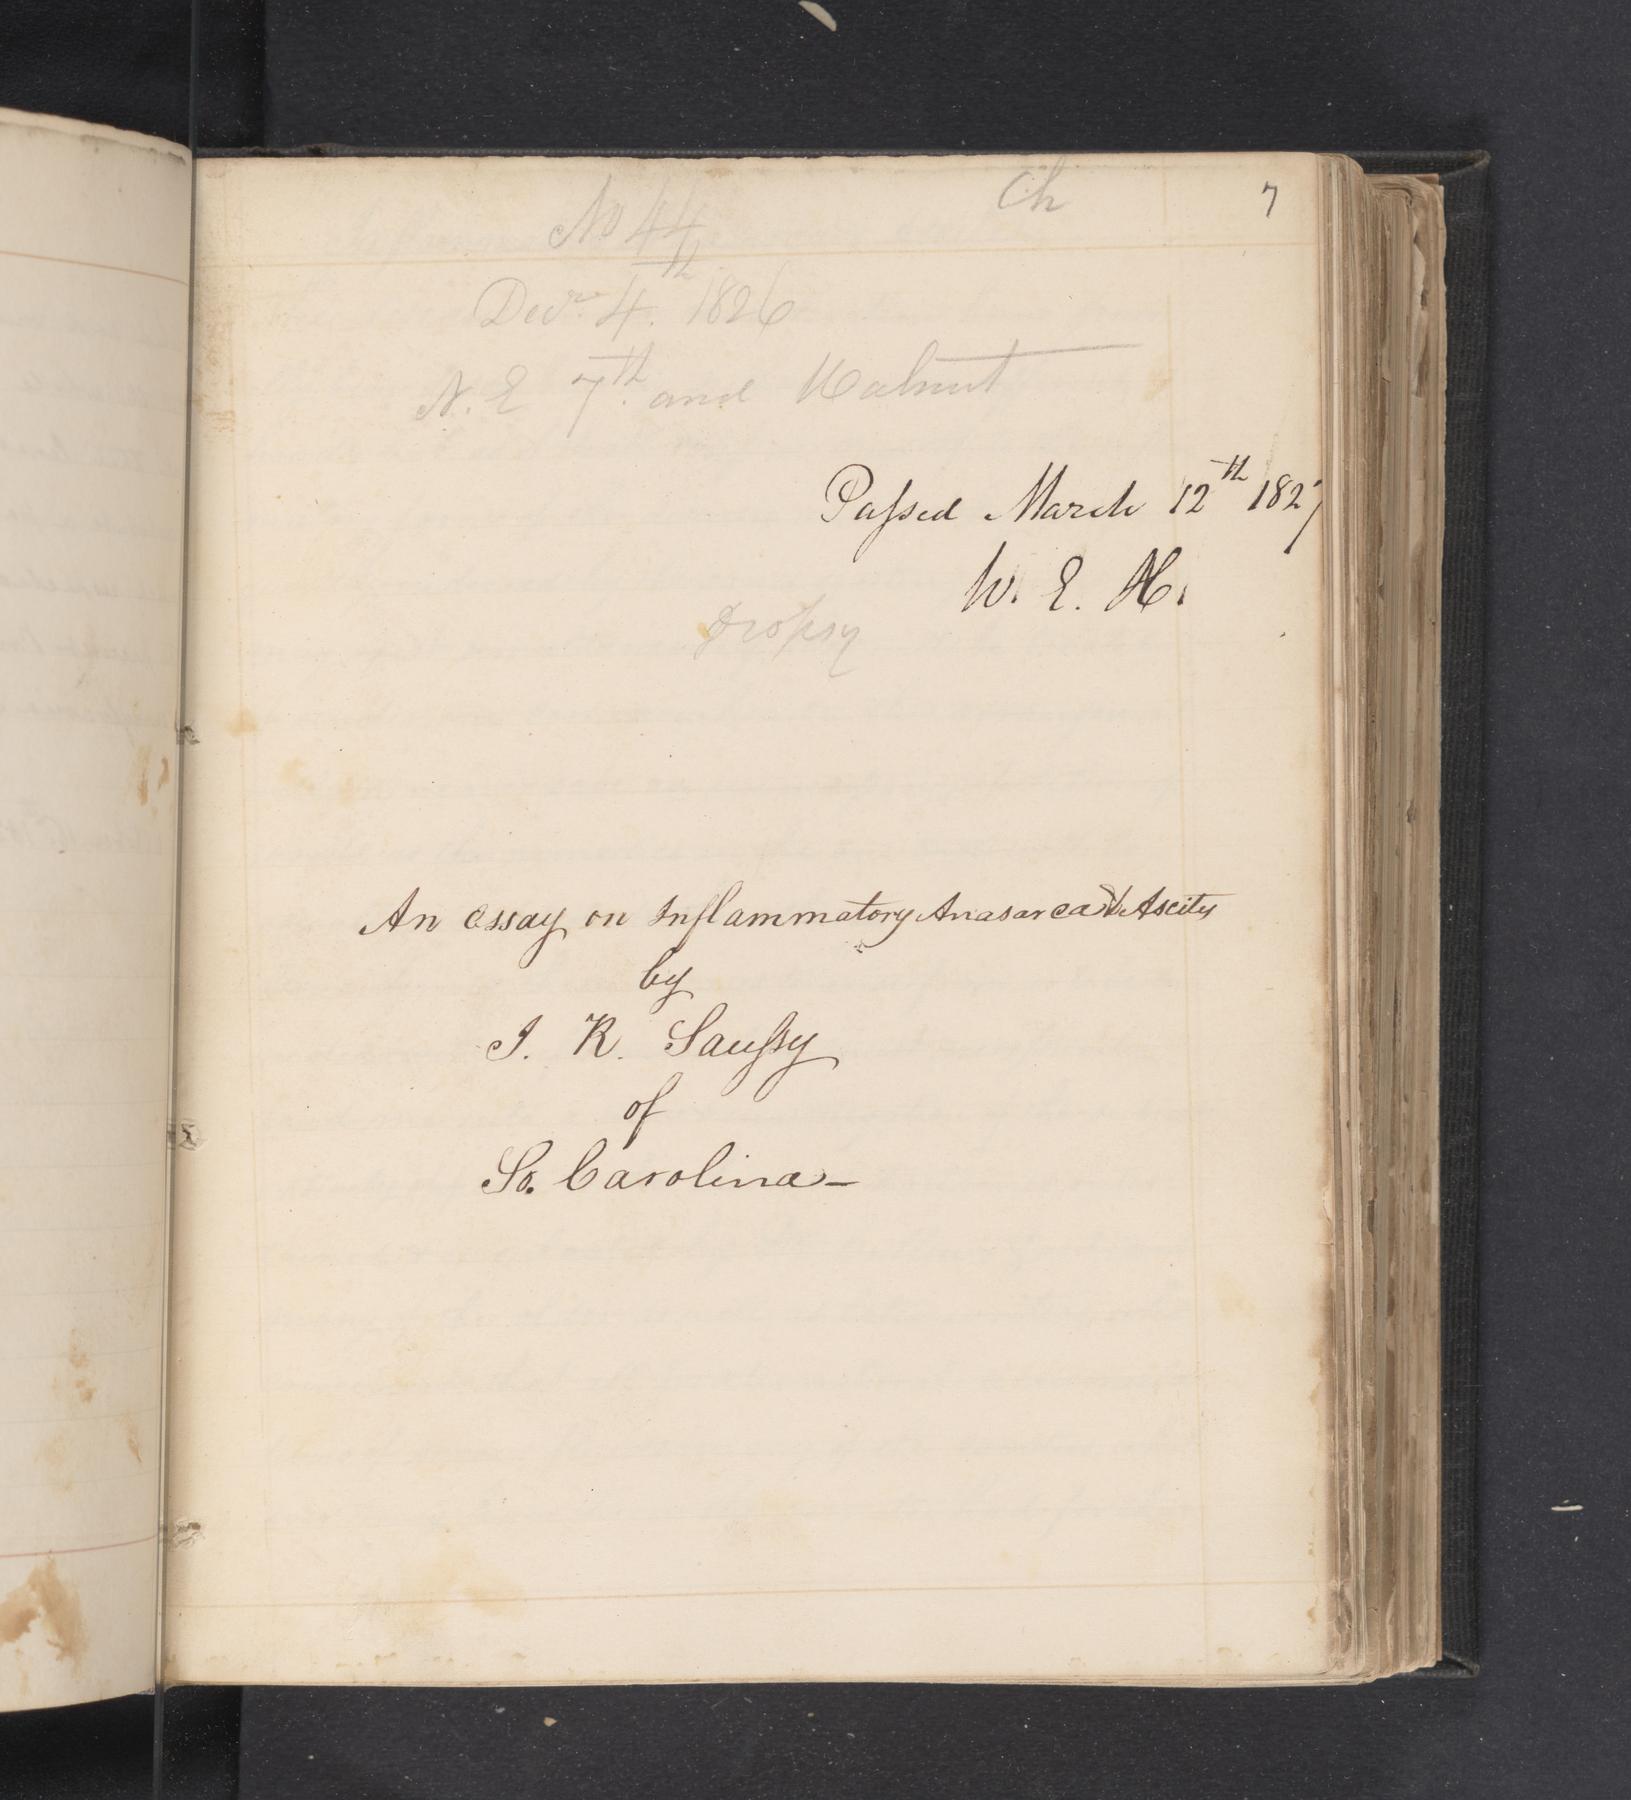 Ch
7
No 44
Decr. 4th. 1826
N. E 7th. and Walnut
Passed March 12th 1827
W. E. H.
Dropsy
An essay on Inflammatory Anasarca & Ascites
by
J. R. Saussy
of
So. Carolina-